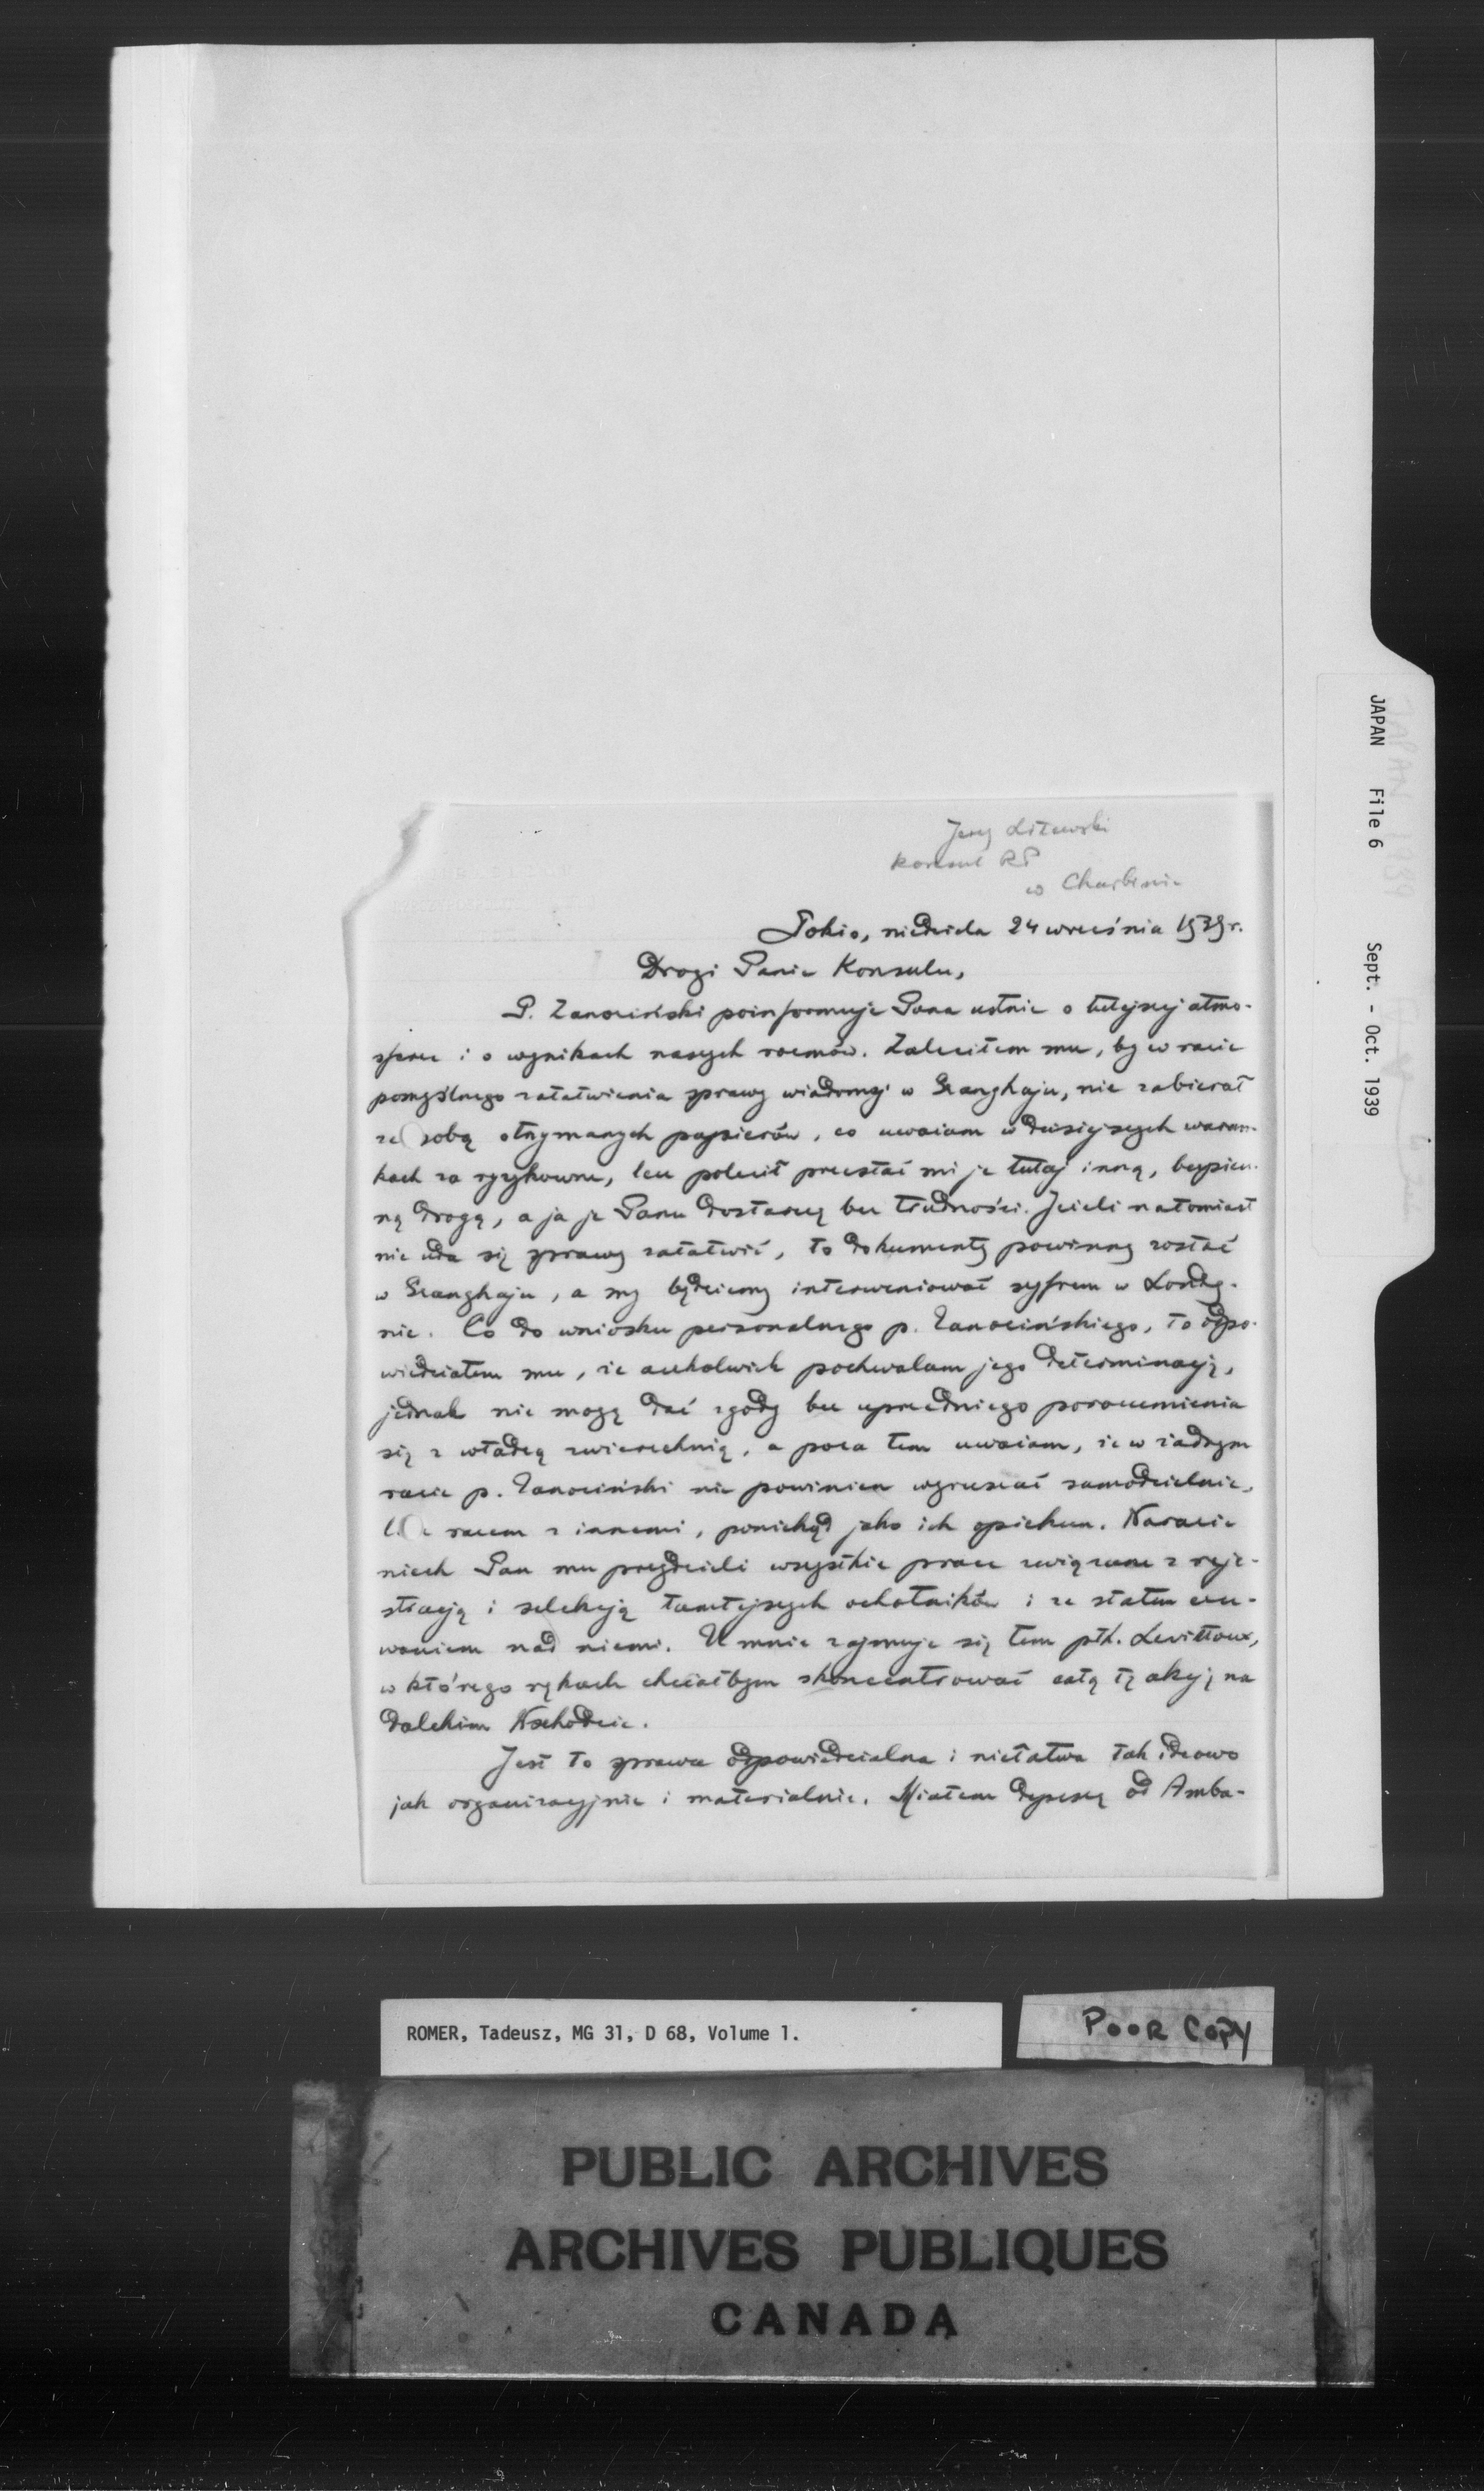 Jerzy Litewski
Konsul RP
w Charbinie
Tokio, niedziela 24 września 1939 r.
Drogi Panie Konsulu,
P. Zanoziński poinformuje Pana ustnie o tutejszej atmo-
sferze i o wynikach naszych rozmów. Zaleciłem mu, by w razie
pomyślnego załatwienia sprawy wiadomej w Szanghaju, nie zabierał
ze sobą otrzymanych papierów, co uważam w dzisiejszych warun-
kach za ryzykowne, lecz polecił przesłać mi je tutaj inną, bezpiecz-
ną drogą, a ja je Panu dostarczę bez trudności. Jeżeli natomiast
nie uda się sprawy załatwić, to dokumenty powinny zostać
w Szanghaju, a my będziemy interweniować szyfrem w Londy-
nie. Co do wniosku personalnego p. Zanozińskiego, to odpo-
wiedziałem mu, że aczkolwiek pochwalam jego determinację,
jednak nie mogę dać zgody bez uprzedniego porozumienia
się z władzą zwierzchnią, a poza tem uważam, że w żadnym
razie p. Zanoziński nie powinien wyruszać samodzielnie,
lecz razem z innemi, poniekąd jako ich opiekun. Narazie
niech Pan mu przydzieli wszystkie prace związane z reje-
stracją i selekcją tamtejszych ochotników i ze stałem czu-
waniem nad niemi. U mnie zajmuje się tem płk. Levittoux,
w którego rękach chciałbym skoncentrować całą tę akcję na
Dalekim Wschodzie.
Jest to sprawa odpowiedzialna i niełatwa tak ideowo
jak organizacyjnie i materialnie. Miałem depeszę od Amba-
JAPAN File 6 Sept. - Oct. 1939
ROMER, Tadeusz, MG 31, D 68, Volume 1.
POOR COPY
PUBLIC ARCHIVES
ARCHIVES PUBLIQUES
CANADA